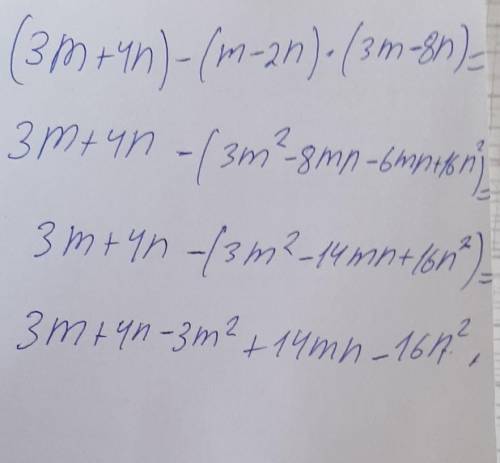 (3m+4n)-(m-2n)·(3m-8n)=
3m+4n -(3m²-8mn-6mn+16n²)=
3m+4n -(3m²-14mn+16n²)=
3m+4n-3m²+14mn-16n².